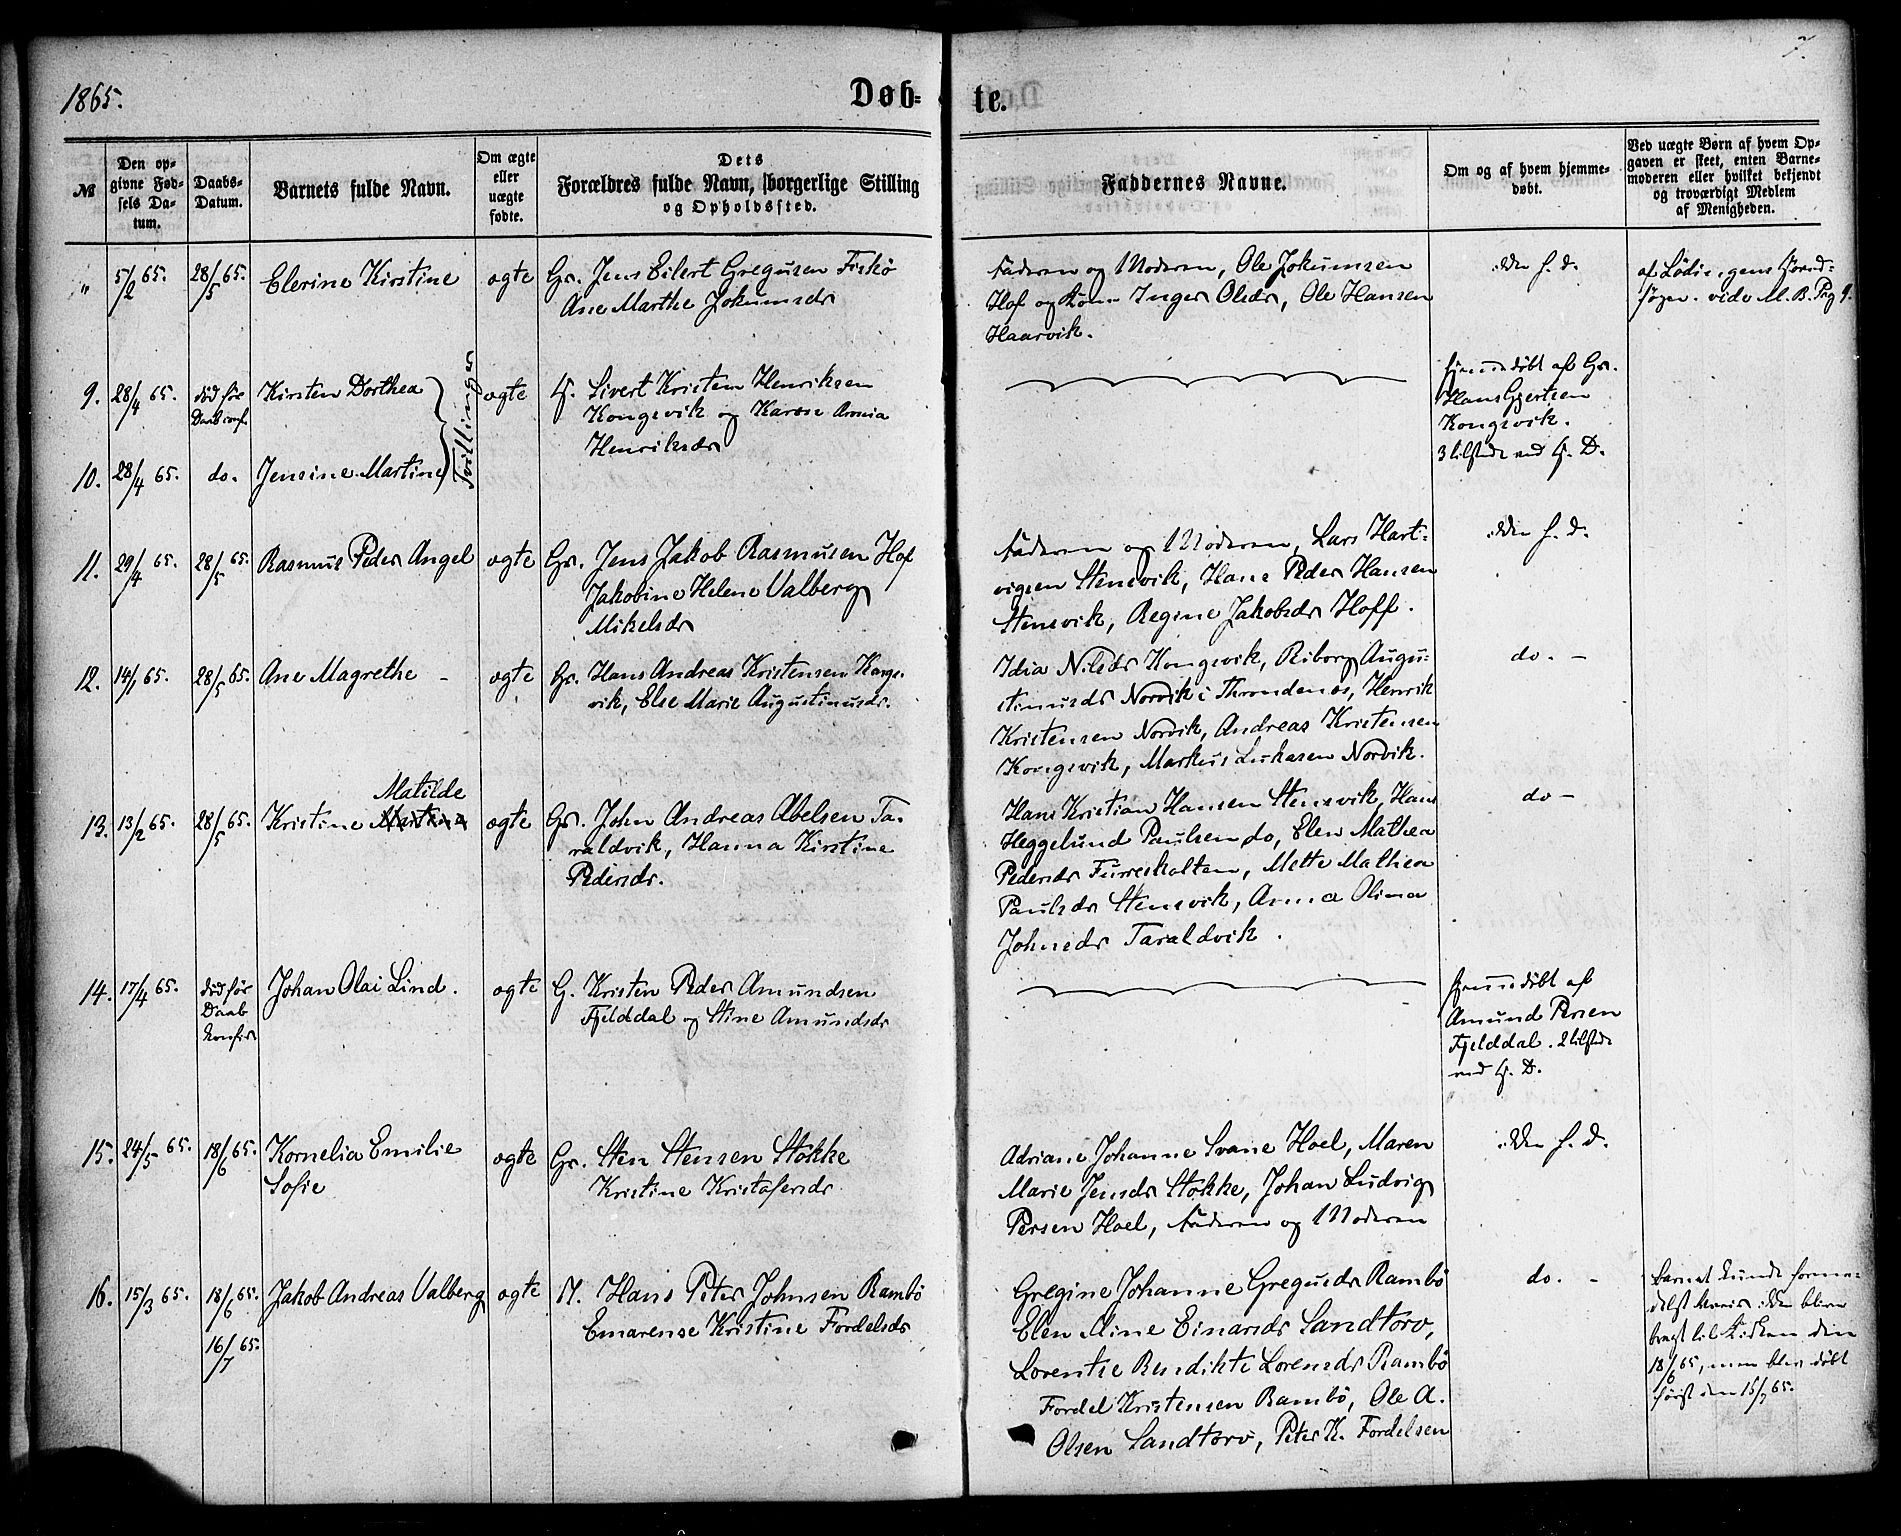 1865.
Døb-
te.
7.
№
Den op-
givne Fød-
sels Da-
tum.
Daabs-
Datum.
Barnets fulde Navn.
Om ægte
eller
uægte
fødte.
Dets
Forældres fulde Navn, borgerlige Stilling
og Opholdssted.
Faddernes Navne.
Om og af hvem hjemme-
døbt.
Ved uægte Børn af hvem Op-
gaven er skeet, enten Barne-
moderen eller hvilket bekjendt
og troværdigt Medlem
af Menigheden.
" 5/2 65. 28/5 65. Elerine Kirstine ægte Gr. Jens Eilert Gregusen Fiskø
Ane Marthe Jokumsdr
Faderen og Moderen, Ole Jokumsen
Hof og Inger Olsdr, Ole Hansen
Haarvik.
ikke h. d.
vide M. B. Pag 9.
9. 28/4 65. død før
Daab Kirsten Dorthea ægte Sivert Kristen Henriksen
Kongsvik og Karose Annia
Henriksdr
Tvillinger
10. 28/4 65. do. Jensine Martine
hjemmedøbt af Gr.
Hans Gjertsen
Kongsvik.
3 tilstede ved Hj. D.
11. 29/4 65. 28/5 65. Rasmus Peder Angel ægte Gr. Jens Jakob Rasmusen Hof
Jakobine Helene Valberg
Mikelsdr
Faderen og Moderen, Lars Hart-
vigsen Stensvik, Hans Peder Hansen
Stensvik, Regine Jakobsdr Hoff.
ikke h. d.
12. 14/1 65. 28/5 65. Ane Magrethe - ægte Gr. Hans Andreas Kristensen Kongs-
vik, Else Marie Augustinusdr.
Idia Nilsdr Kongsvik, Riborg Augu-
stinusdr Norvik i Throndenæs, Henrik
Kristensen Norvik, Andreas Kristensen
Kongsvik, Markus Lukasen Nordvik.
do. -
13. 13/2 65. 28/5 65. Kristine Martina
Matilde
ægte Gr. John Andreas Abelsen Ta-
raldvik, Hanna Kirstine
Pedersdr.
Hans Kristian Hansen Stensvik, Hans
Heggelund Paulsen do, Elen Mathea
Pedersdr Furreskolten, Mette Mathea
Paulsdr Stensvik, Anna Olina
Johnsdr Taraldvik.
do -
14. 17/4 65. død før
Daab
konfir Johan Olai Lind. ægte G. Kristen Peder Amundsen
Fjelddal og Stine Amundsdr
hjemmedøbt af
Amund Persen
Fjelddal. 2 tilstede
ved Hj. D.
15. 24/5 65. 18/6 65. Kornelia Emilie
Sofie
ægte Gr. Sten Stensen Stokke
Kristine Kristofersdr
Adriane Johanne Svane Hoel, Maren
Marie Jensdr Stokke, Johan Ludvig
Persen Hoel, Faderen og Moderen
ikke h. d.
16. 15/3 65. 18/6 65.
16/7 65.
Jakob Andreas Valberg ægte N. Hans Peter Johnsen Rambø
Emarense Kristine Fordelsdr
Gregine Johanne Gregusdr Rambø
Elen Mine Einarsdr Sandtorv,
Lorentse Bendikte Lorensdr Rambø
Fordel Kristensen Rambø, Ole A.
Olsen Sandtorv, Peter K. Fordelsen
do. -
Barnet kunde forme-
delst Kveis ikke blive
bragt til Kirken den
18/6 65, men blev døbt
først den 15/7 65.